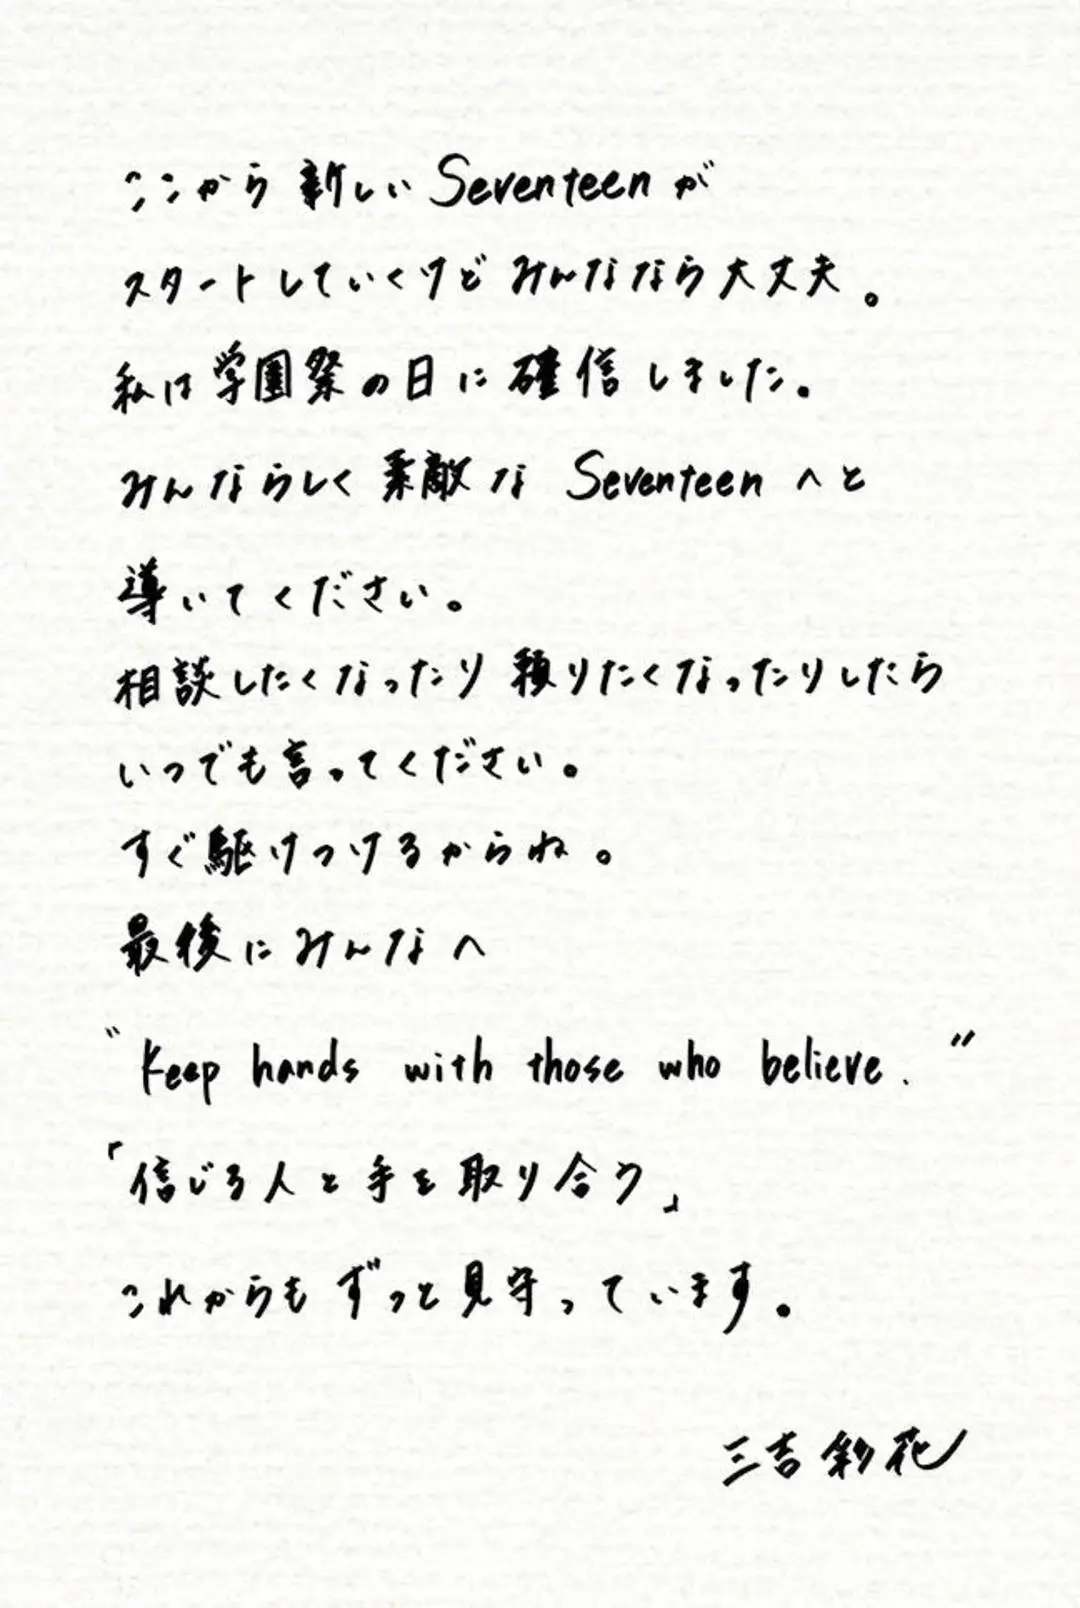 ここから新しいSeventeenが
スタートしていくけどみんななら大丈夫。
私は学園祭の日に確信しました。
みんならしく素敵なSeventeenへと
導いてください。
相談したくなったり頼りたくなったりしたら
いつでも言ってください。
すぐ駆けつけるからね。
最後にみんなへ
"Keep hands with those who believe."
「信じる人と手を取り合う」
これからもずっと見守っています。
三吉彩花